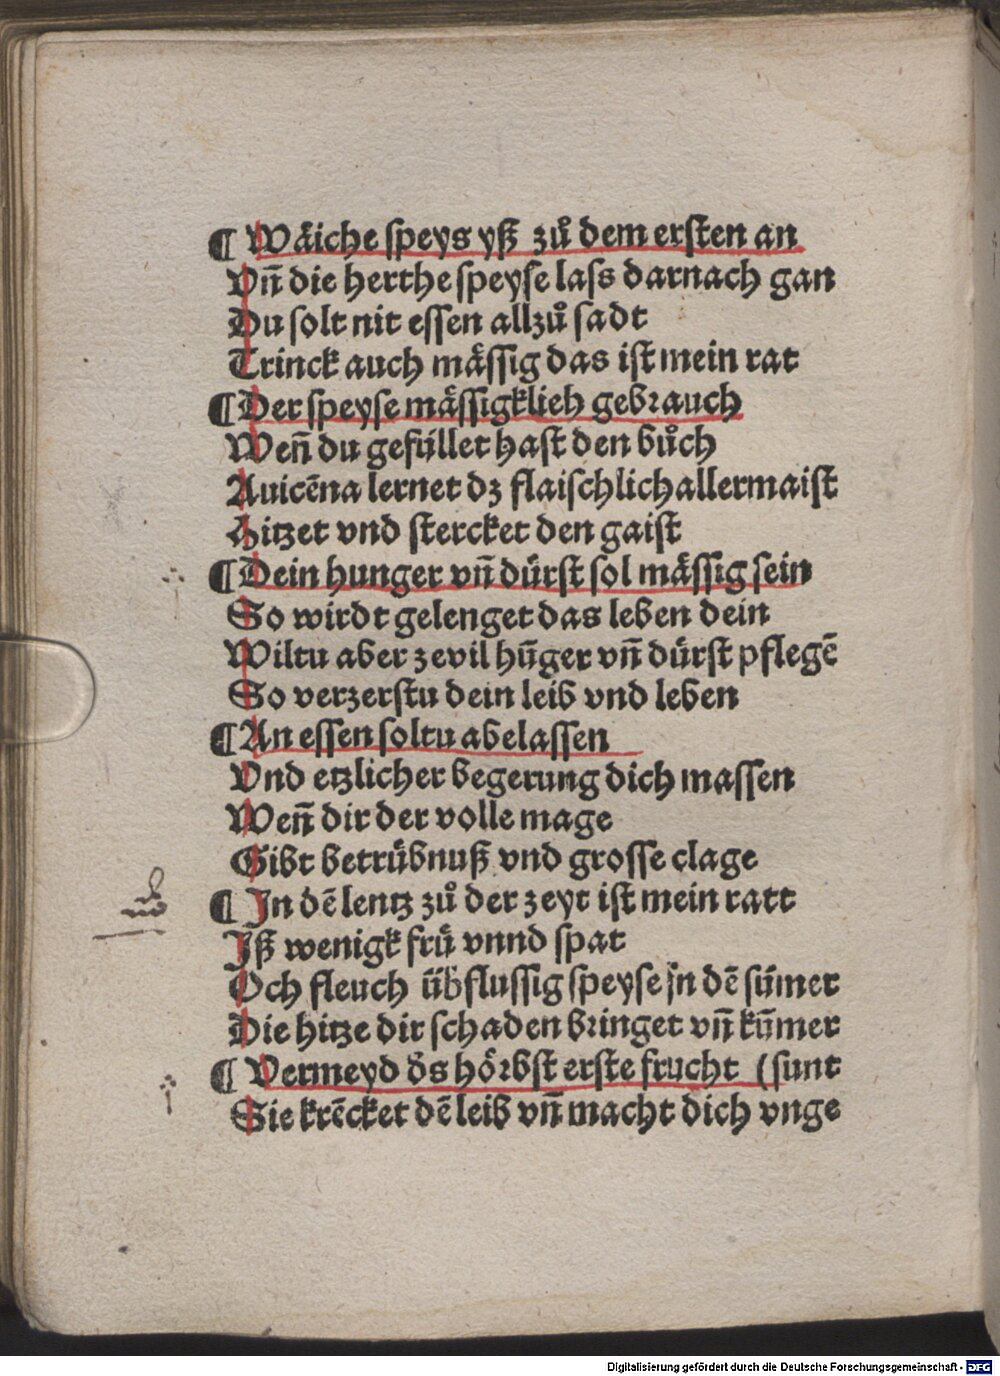 ¶ Wäiche speys yß zů dem ersten an
Vn̄ die herthe speyse lass darnach gan
Du solt nit essen allzů sadt
Trinck auch mässig das ist mein rat
¶ Der speyse mässigklieh gebrauch
Wen̄ du gefüllet hast den bůch
Auicēna lernet dz flaischlich allermaist
Hitzet vnd stercket den gaist
¶ Dein hunger vn̄ dürst sol mässig sein
So wirdt gelenget das leben dein
Wiltu aber zevil hūger vn̄ dürst pflegē
So verzerstu dein leib vnd leben
¶ An essen soltu abelassen
Vnd etzlicher begerung dich massen
Wen̄ dir der volle mage
Gibt betrübnuß vnd grosse clage
¶ In dē lentz zů der zeyt ist mein ratt
Iß wenigk frü vnnd spat
Och fleuch üb̄flussig speyse jn dē sūmer
Die hitze dir schaden bringet vn̄ kūmer
¶ Vermeyd d̄s hörbst erste frucht (sunt
Sie krēcket dē leib vn̄ macht dich vnge
Digitalisierung gefördert durch die Deutsche Forschungsgemeinschaft - DFG